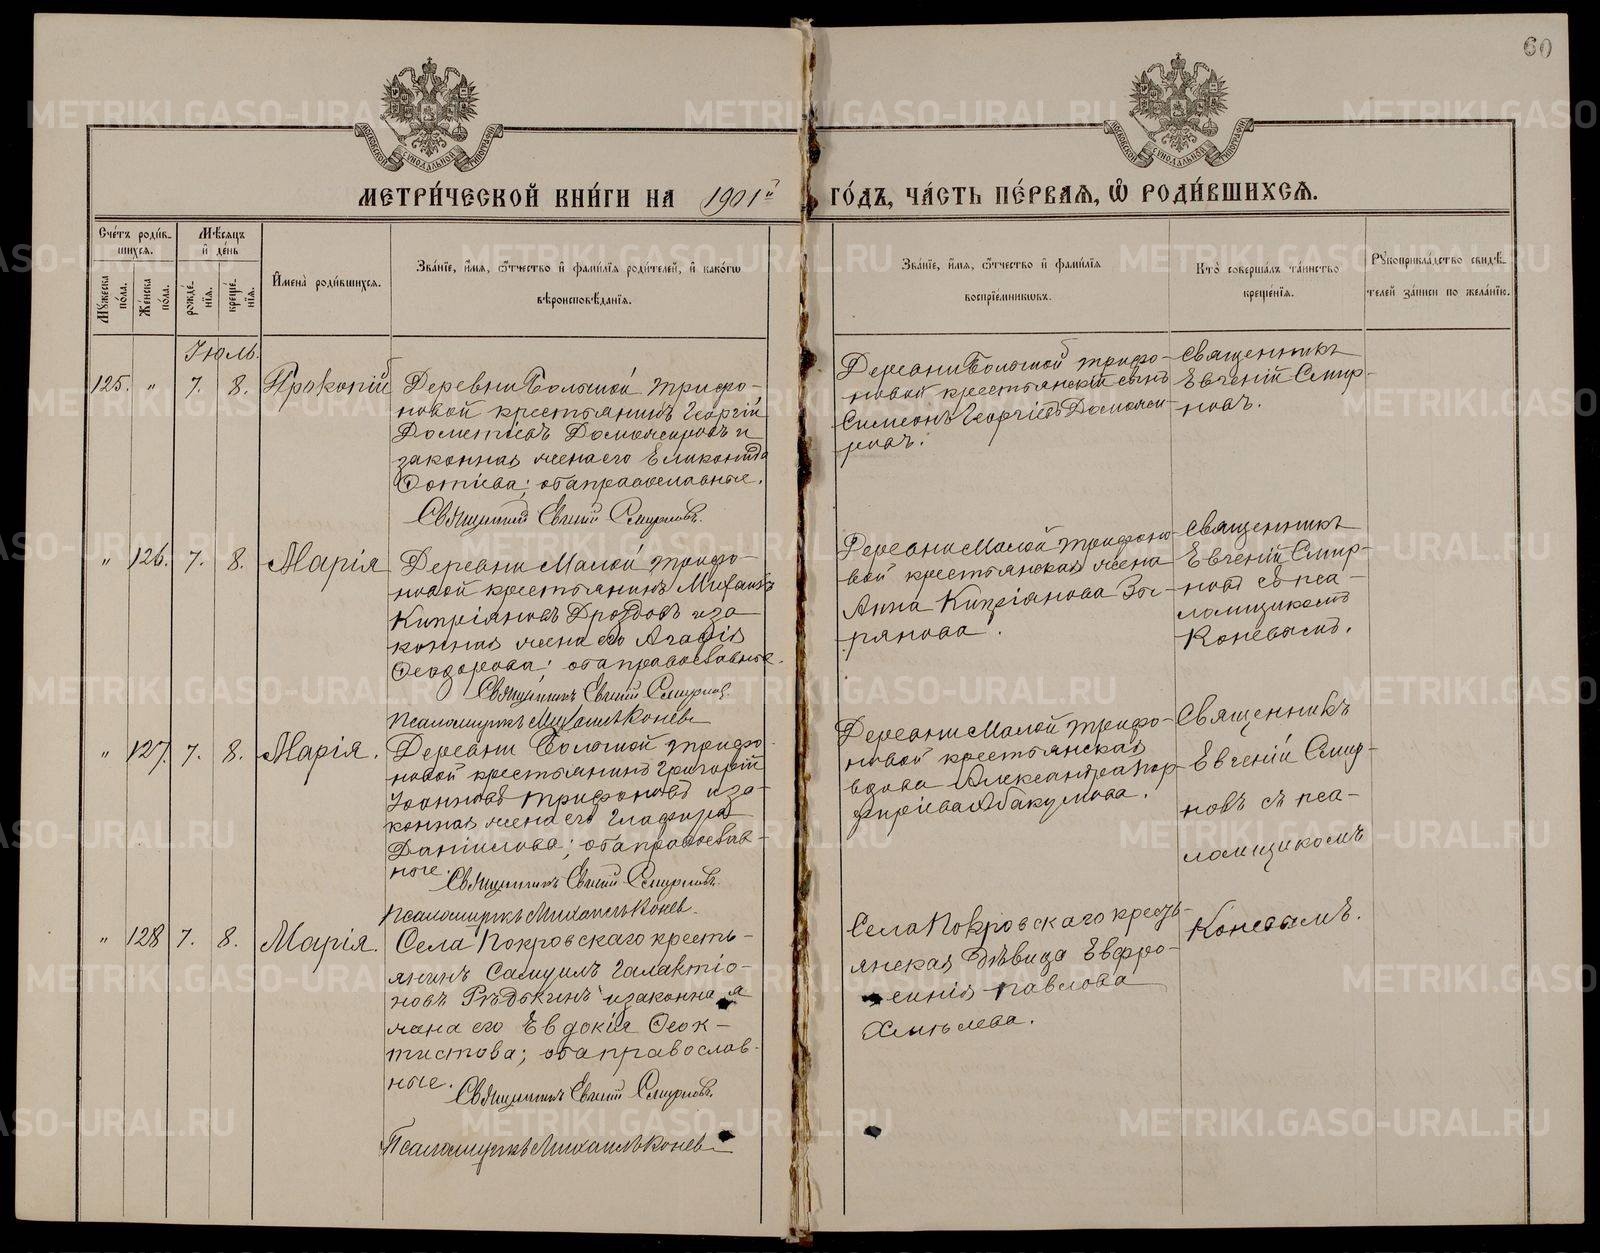 60
МЕТРИ́ЧЕСКОЙ КНИ́ГИ НА 1901й ГО́ДЪ, ЧА́СТЬ ПЕ́РВАЯ, Ѿ РОДИ́ВШИХСЯ.
Сче́тъ роди́в-
шихся.
Му́жеска пола.
Же́нска по́ла.
Мѣ́сяцъ
и де́нь
рожде́-
нїя.
креще́-
нїя.
Имена̀ роди́вшихся.
Зва́нїе, и́мя, ѻ́тчество и фами́лїя роди́телей, и како́гѡ
вѣроисповѣ́данїя.
Зва́нїе, и́мя, ѻ́тчество и фами́лїя
воспрїе́мникѡвъ.
Кто̀ соверша́лъ та́инство
креще́нїя.
Рꙋкоприкла́дство свидѣ́-
телей за́писи по жела́нїю.
Іюль.
125. " 7. 8. Прокопій
Деревни Большой Трифо-
новой крестьянинъ Георгій
Дометіевъ Доможировъ и
законная жена его Еликонида
Фотіева; оба православные.
Священникъ Евгеній Смирновъ.
Деревни Большой Трифо-
новой крестьянскій сынъ
Симеонъ Георгіевъ Доможи-
ровъ.
Священникъ
Евгеній Смир-
новъ.
" 126. 7. 8. Марія
Деревни Малой Трифо-
новой крестьянинъ Михаилъ
Кипріановъ Дроздовъ и за-
конная жена его Агафія
Феодорова; оба православные.
Священникъ Евгеній Смирновъ.
Псаломщикъ Михаилъ Коневъ
Деревни Малой Трифоно-
вой крестьянская жена
Анна Кипріанова Зы-
рянова.
Священникъ
Евгеній Смир-
новъ съ пса-
ломщикомъ
Коневымъ.
" 127. 7. 8. Марія.
Деревни Большой Трифо-
новой крестьянинъ Григорій
Іоанновъ Трифоновъ и за-
конная жена его Глафира
Даніилова; оба православ-
ные.
Священникъ Евгеній Смирновъ.
Псаломщикъ Михаилъ Конев.
Деревни Малой Трифо-
новой крестьянская
вдова Александра Пор-
фиріева Абакумова.
Священникъ
Евгеній Смир-
новъ съ пса-
ломщикомъ
Коневымъ.
" 128 7. 8. Марія.
Села Покровскаго кресть-
янинъ Самуилъ Галактіо-
новъ Рѣдькинъ и законная
жена его Евдокія Феок-
тистова; оба православ-
ные.
Священникъ Евгеній Смирновъ.
Псаломщикъ Михаилъ Конев
Села Покровскаго кресть-
янская дѣвица Евфро-
синія Павлова
Хмѣлева.